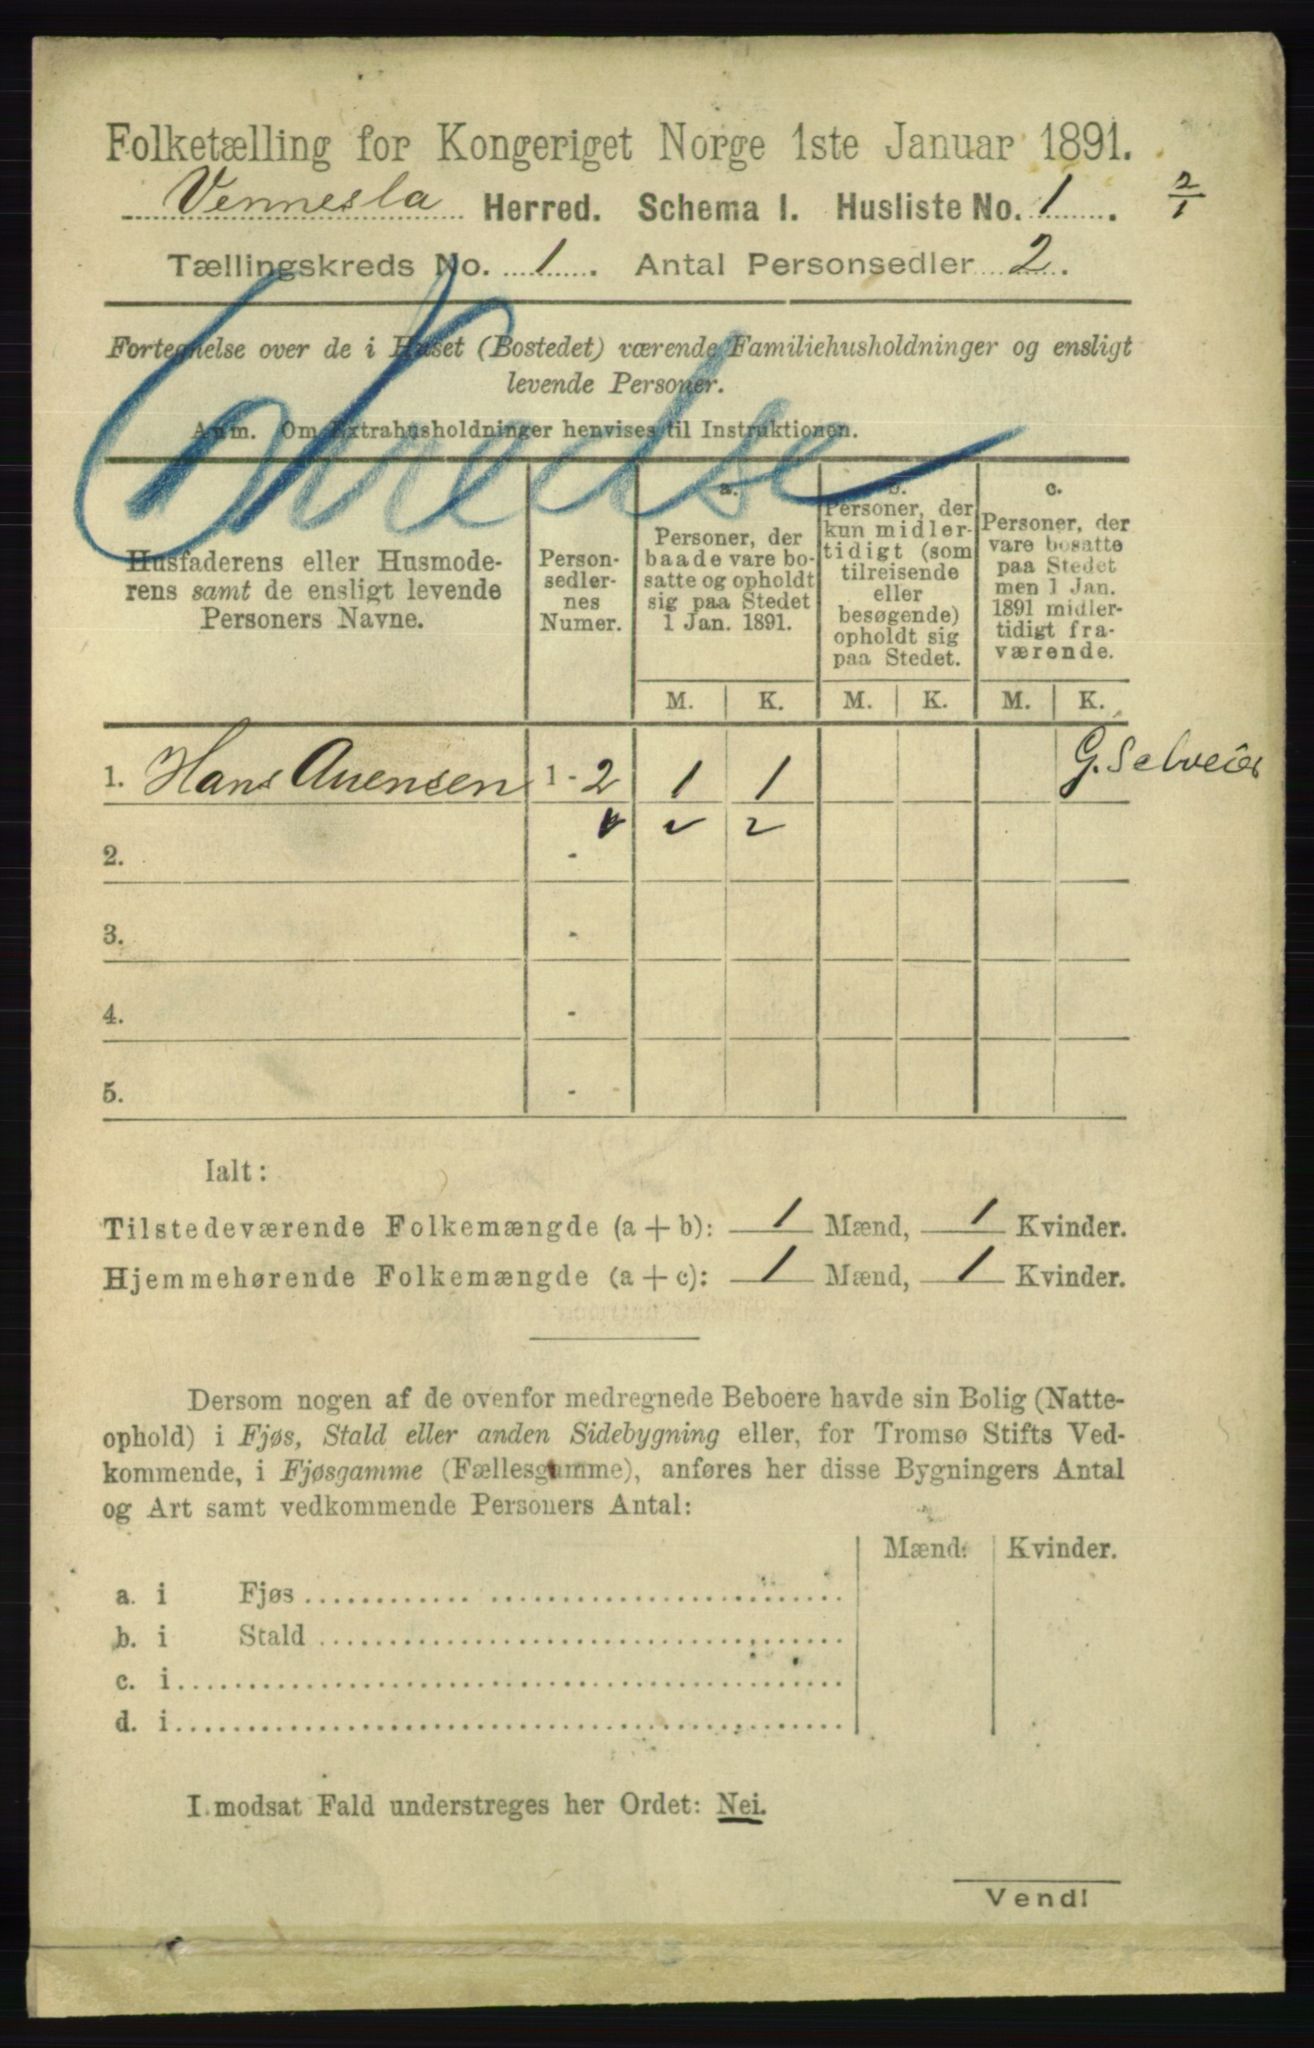 Folketælling for Kongeriget Norge 1ste Januar 1891.
Vennesla Herred. Schema I. Husliste No. 1. 2/1
Tællingskreds No. 1. Antal Personsedler 2.
Fortegnelse over de i Huset (Bostedet) værende Familiehusholdninger og ensligt
levende Personer.
Anm. Om Extrahusholdninger henvises til Instruktionen.
Husfaderens eller Husmode-
rens samt de ensligt levende
Personers Navne.
Person-
sedler-
nes
Numer.
a.
Personer, der
baade vare bo-
satte og opholdt
sig paa Stedet
1 Jan. 1891.
b.
Personer, der
kun midler-
tidigt (som
tilreisende
eller
besøgende)
opholdt sig
paa Stedet.
c.
Personer, der
vare bosatte
paa Stedet
men 1 Jan.
1891 midler-
tidigt fra-
værende.
M. K. M. K. M. K.
1. Hans Auensen 1 - 2 1 1 G. Selveier
2. -
3. -
4. -
5. -
Ialt:
Tilstedeværende Folkemængde (a + b): 1 Mænd, 1 Kvinder.
Hjemmehørende Folkemængde (a + c): 1 Mænd, 1 Kvinder.
Dersom nogen af de ovenfor medregnede Beboere havde sin Bolig (Natte-
ophold) i Fjøs, Stald eller anden Sidebygning eller, for Tromsø Stifts Ved-
kommende, i Fjøsgamme (Fællesgamme), anføres her disse Bygningers Antal
og Art samt vedkommende Personers Antal:
Mænd: Kvinder.
a. i Fjøs
b. i Stald
c. i
d. i
I modsat Fald understreges her Ordet: Nei.
Vend!